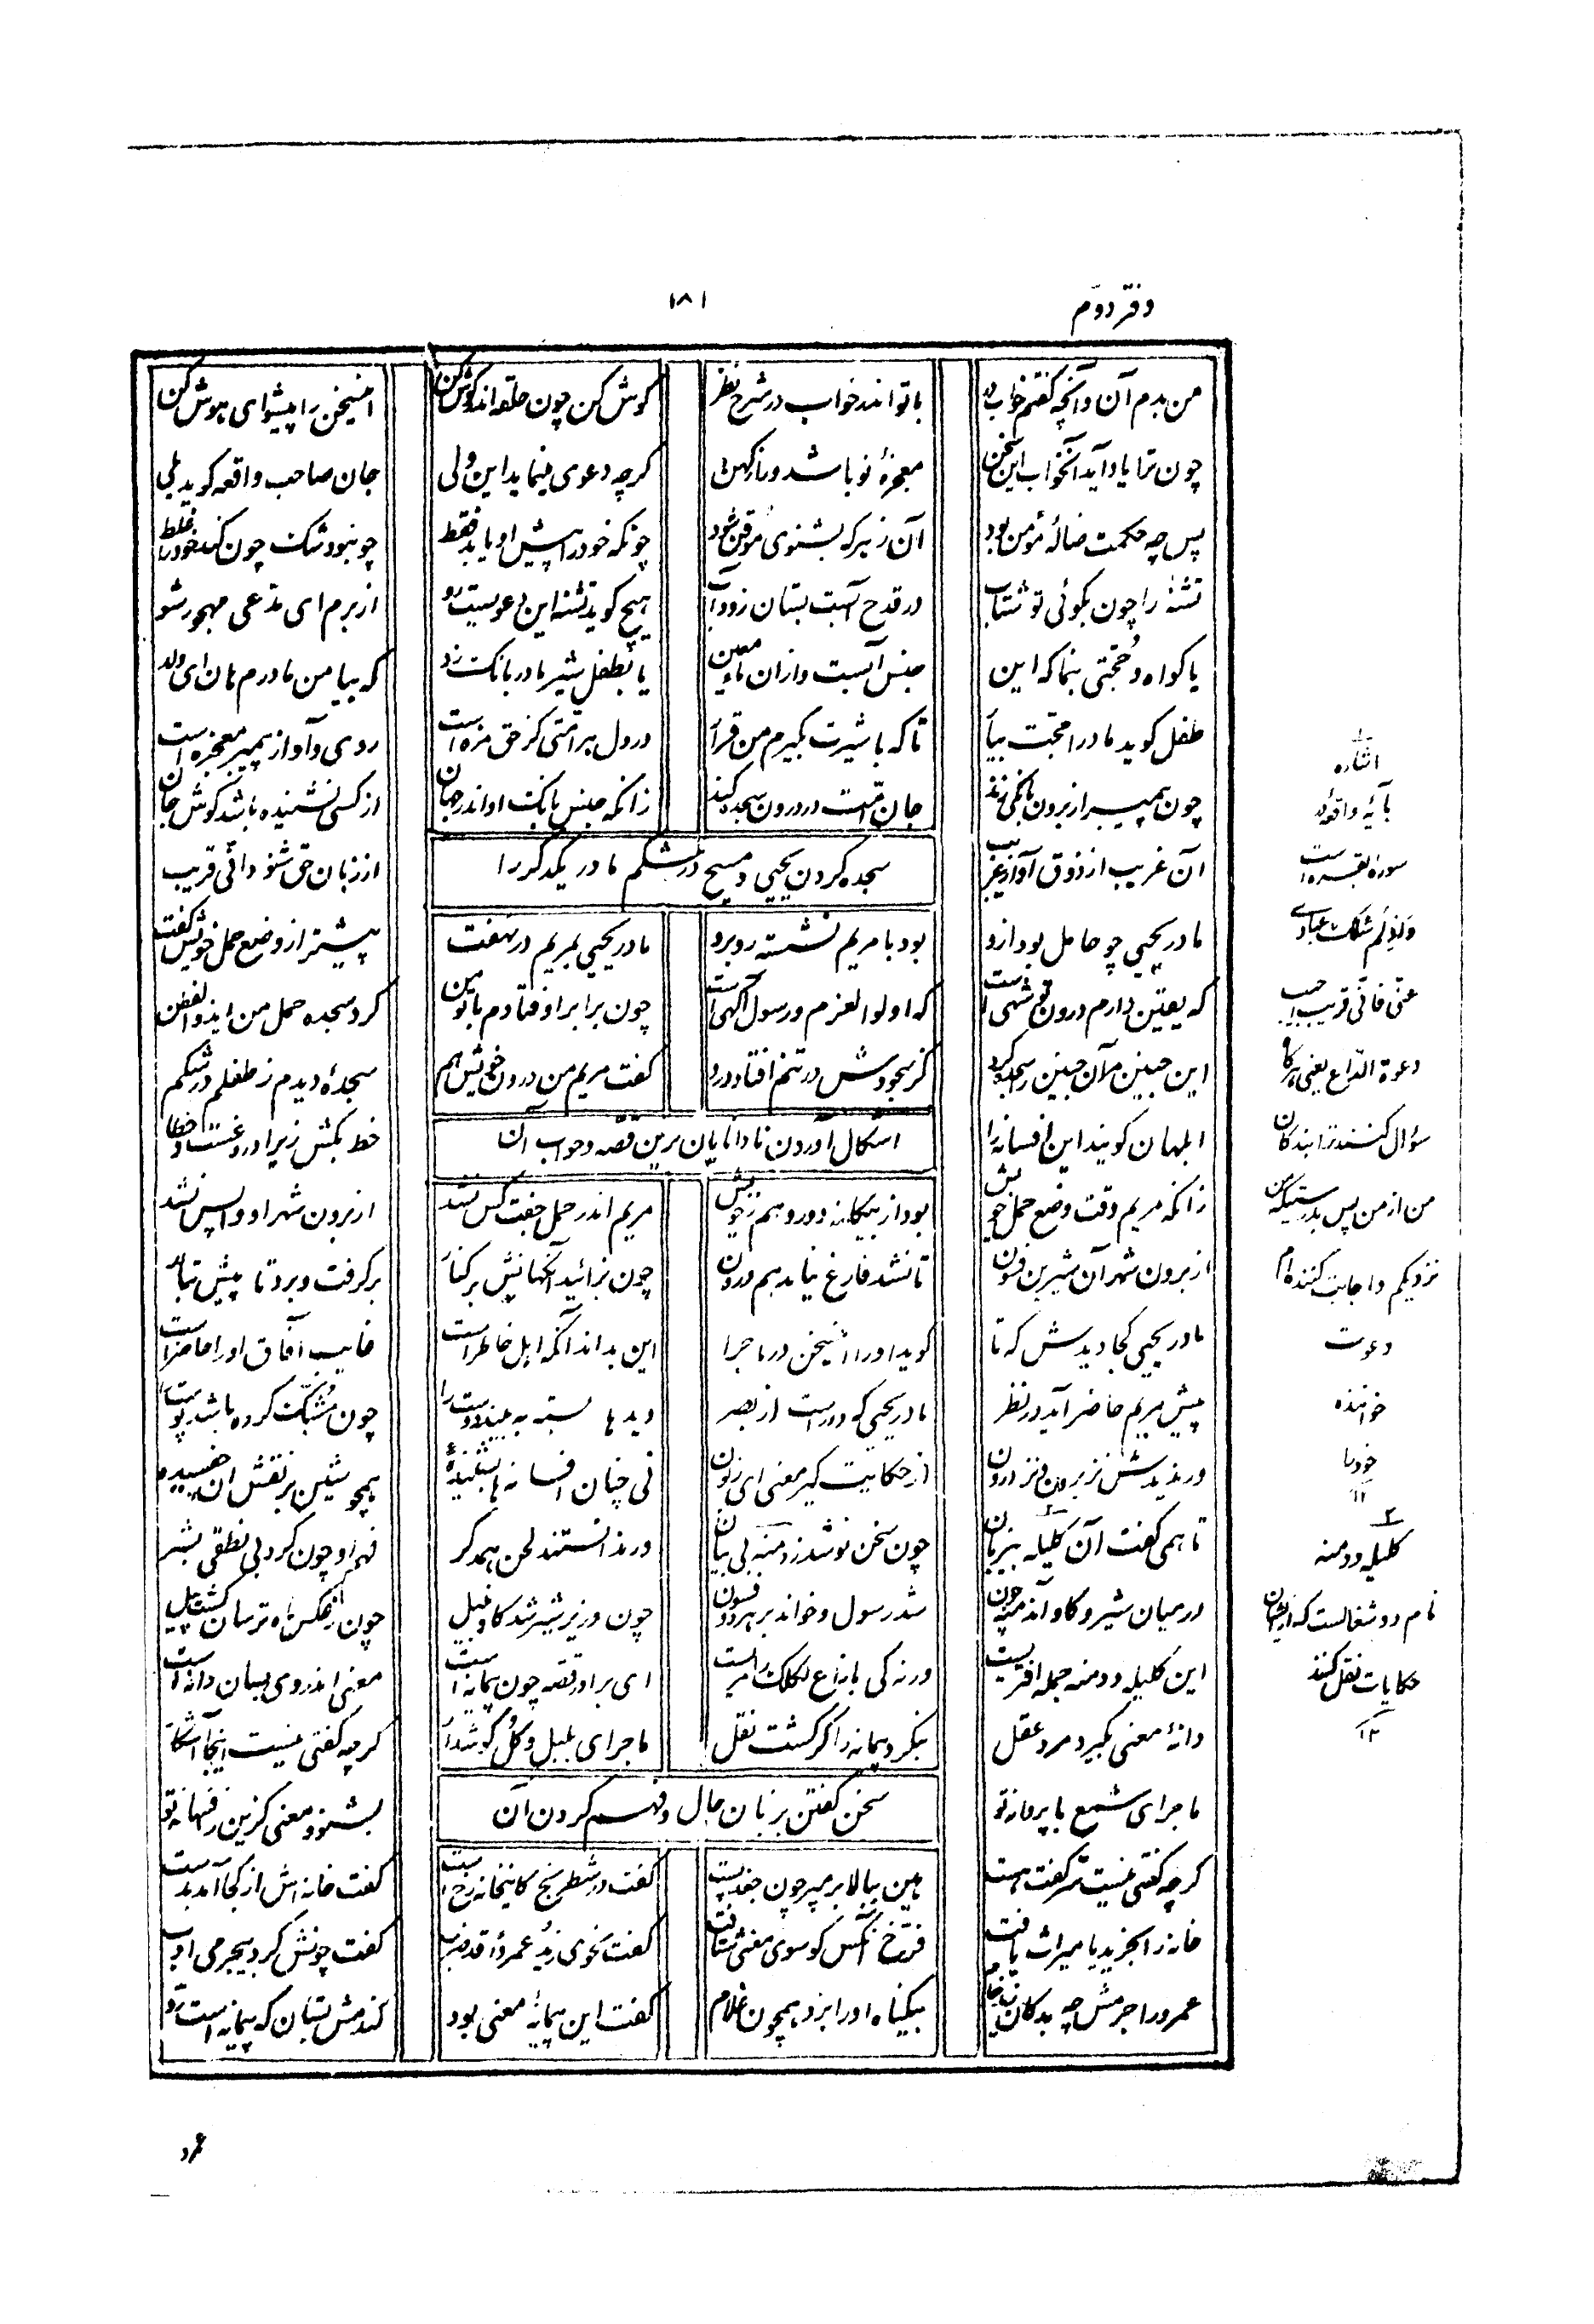 دفتر دوم
۱۸۱
من بدم آن وآنچه گفتم خواب در با تو اندر خواب در شرح نظر گوش کن چون حلقه اندر گوش کن اینسخن را پیشوای هوش کن
چون ترا یاد آید آنخواب این سخن معجزهٔ نو باشد و راز کهن گرچه دعوی مینماید این ولی جان صاحب واقعه گوید بلی
پس چه حکمت ضالهٔ مؤمن بود آن ز هر که بشنوی موقن شود چونکه خود را پیش او یابد فقط چو نبود شک چون کند خود را غلط
تشنهٔ را چون بگوئی تو شتاب در قدح آبست بستان زود آب هیچ گوید تشنه این دعویست رو از برم ای مدعی مهجور شو
یا گواه و حجتی بنما که این جنس آبست و از آن ماء معین یا بطفل شیر مادر بانک زد که بیا من مادرم هان ای ولد
طفل گوید مادرا حجت بیار تا که با شیرت بگیرم من قرار در دل هر امتی کز حق مزه است روی و آواز پیمبر معجزه است
چون پیمبر از برون بانگی زند جان امت در درون سجده کند زانکه جنس بانگ او اندر جهان از کسی نشنیده باشد گوش جان
آن غریب از ذوق آواز غریب از زبان حق شنود انی قریب
سجده کردن یحیی و مسیح در شکم مادر یکدگر را
مادر یحیی چو حامل بود ازو بود با مریم نشسته روبرو مادر یحیی بمریم در نهفت پیشتر از وضع حمل خویش گفت
که یقین دارم درون تو شهی است که اولوا العزم و رسول آگهی است چون برابر اوفتادم با تو من کرد سجده حمل من ایذوالفطن
این جنین مر آن جنین را سجده کرد کز سجودش در تنم افتاد درد گفت مریم من درون خویش هم سجدهٔ دیدم ز طفلم در شکم
ابلهان گویند این افسانه را خط بکش زیرا دروغست و خطا
اشکال آوردن نادانایان برین قصه و جواب آن
زانکه مریم وقت وضع حمل خویش بود از بیگانه دور و هم ز خویش مریم اندر حمل جفت کس نشد از برون شهر او واپس نشد
از برون شهر آن شیرین فسون تا نشد فارغ نیامد هم درون چون بزائید آنگهانش بر کنار برگرفت و برد تا پیش تبار
مادر یحیی کجا دیدش که تا گوید او را اینسخن در ماجرا این بداند آنکه اهل خاطر است غایب آفاق او را حاضر است
پیش مریم حاضر آید در نظر مادر یحیی که دور است از بصر دیدها بسته به بیند دوست را چون مشبک کرده باشد پوست را
ور ندیدش نز برون و نز درون از حکایت گیر معنی ای زبون نی چنان افسانه‌ها بشنیدهٔ همچو شین بر نقش آن چفسیده
تا همی گفت آن کلیله بیزبان چون سخن نوشد ز دمنه بی بیان ور ندانستند لحن همدگر فهم او چون کرد بی نطقی بشر
در میان شیر و گاو آن دمنه چون شد رسول و خواند بر هر دو فسون چون وزیر شیر شد گاو نبیل چون ز عکس ماه ترسان گشت پیل
این کلیله و دمنه جمله افتریست ورنه کی با زاغ لکلک را مریست ای برادر قصه چون پیمانه است معنی اندر وی بسان دانه است
دانهٔ معنی بگیرد مرد عقل ننگرد پیمانه را گر گشت نقل ماجرای بلبل و گل گوشدار گرچه گفتی نیست اینجا آشکار
ماجرای شمع با پروانه تو بشنو و معنی گزین ز افسانه تو
سخن گفتن بزبان حال و فهم کردن آن
گرچه گفتی نیست سر گفت هست هین ببالا بر مپر چون جغد پست گفت در شطرنج کاینخانه رخ است گفت خانه‌اش از کجا آمد بدست
خانه را بخرید یا میراث یافت فرخ آنکس کو سوی معنی شتافت گفت نحوی زید عمروا قد ضرب گفت چونش کرد بیجرمی ادب
عمرو را جرمش چه بد کان زید خام بیگناه او را بزد همچون غلام گفت این پیمانهٔ معنی بود گندمش بستان که پیمانه است رد
عمرو
۱
اشاره
بآیهٔ واقعهٔ در
سورهٔ بقره است
و اذا سئلک عبادی
عنی فانی قریب اجیب
دعوة الداع یعنی هر گاه
سؤال کنند ترا بندکان
من از من پس بدرستیکه من
نزدیکم و اجابت کننده‌ام
دعوت
خواننده
خود را
۱۲
۲
کلیله و دمنه
نام دو شغالست که از ایشان
حکایات نقل کنند
۱۲